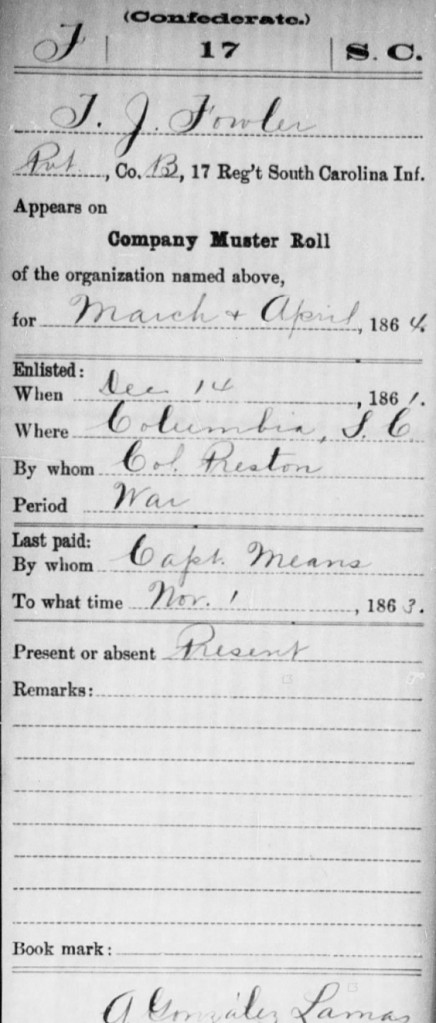 (Confederate.)
F | 17 | S. C.
T. J. Fowler
Pvt, Co. B, 17 Reg't South Carolina Inf.
Appears on
Company Muster Roll
of the organization named above,
for March & April, 1864.
Enlisted:
When Dec 14, 1861.
Where Columbia, S. C.
By whom Col. Preston
Period War
Last paid:
By whom Capt. Means
To what time Nov. 1, 1863.
Present or absent Present
Remarks:
Book mark:
A González Lamas